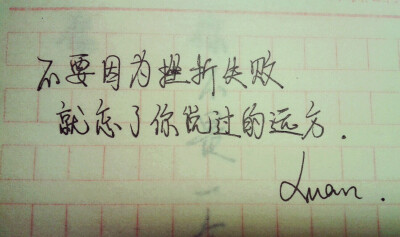 不要因为挫折失败
就忘了你说过的远方.
Luan.